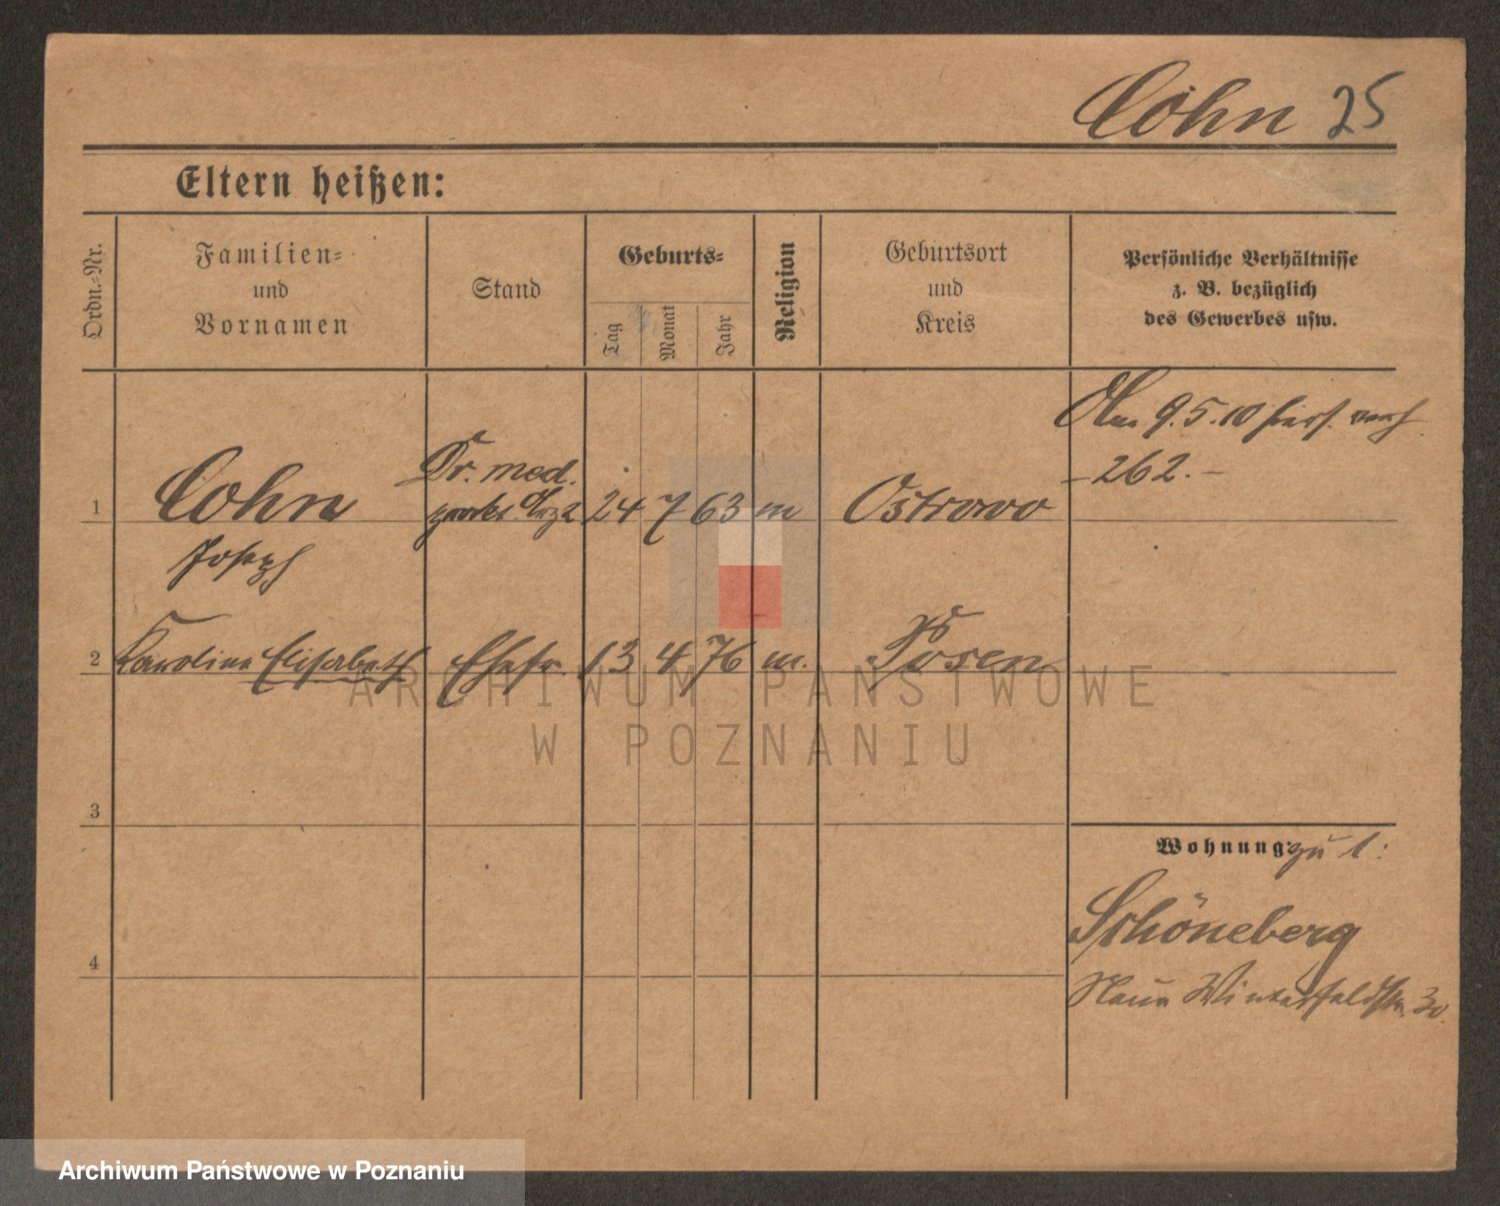 Cohn 25
Eltern heißen:
Ordn.-Nr.
Familien-
und
Vornamen
Stand
Geburts-
Tag
Monat
Jahr
Religion
Geburtsort
und
Kreis
Persönliche Verhältnisse
z. B. bezüglich
des Gewerbes usw.
Am 9.5.10 hier
- 262. -
1 Cohn Dr. med. 24 7 63 m Ostrowo
prakt. Arzt
Joseph
2 Karoline Elisabeth Ehefr. 13 4 76 m. Posen
3
Wohnung zu 1:
Schöneberg
4
Neue Winterfeldstr. 30.
ARCHIWUM PAŃSTWOWE
W POZNANIU
Archiwum Państwowe w Poznaniu